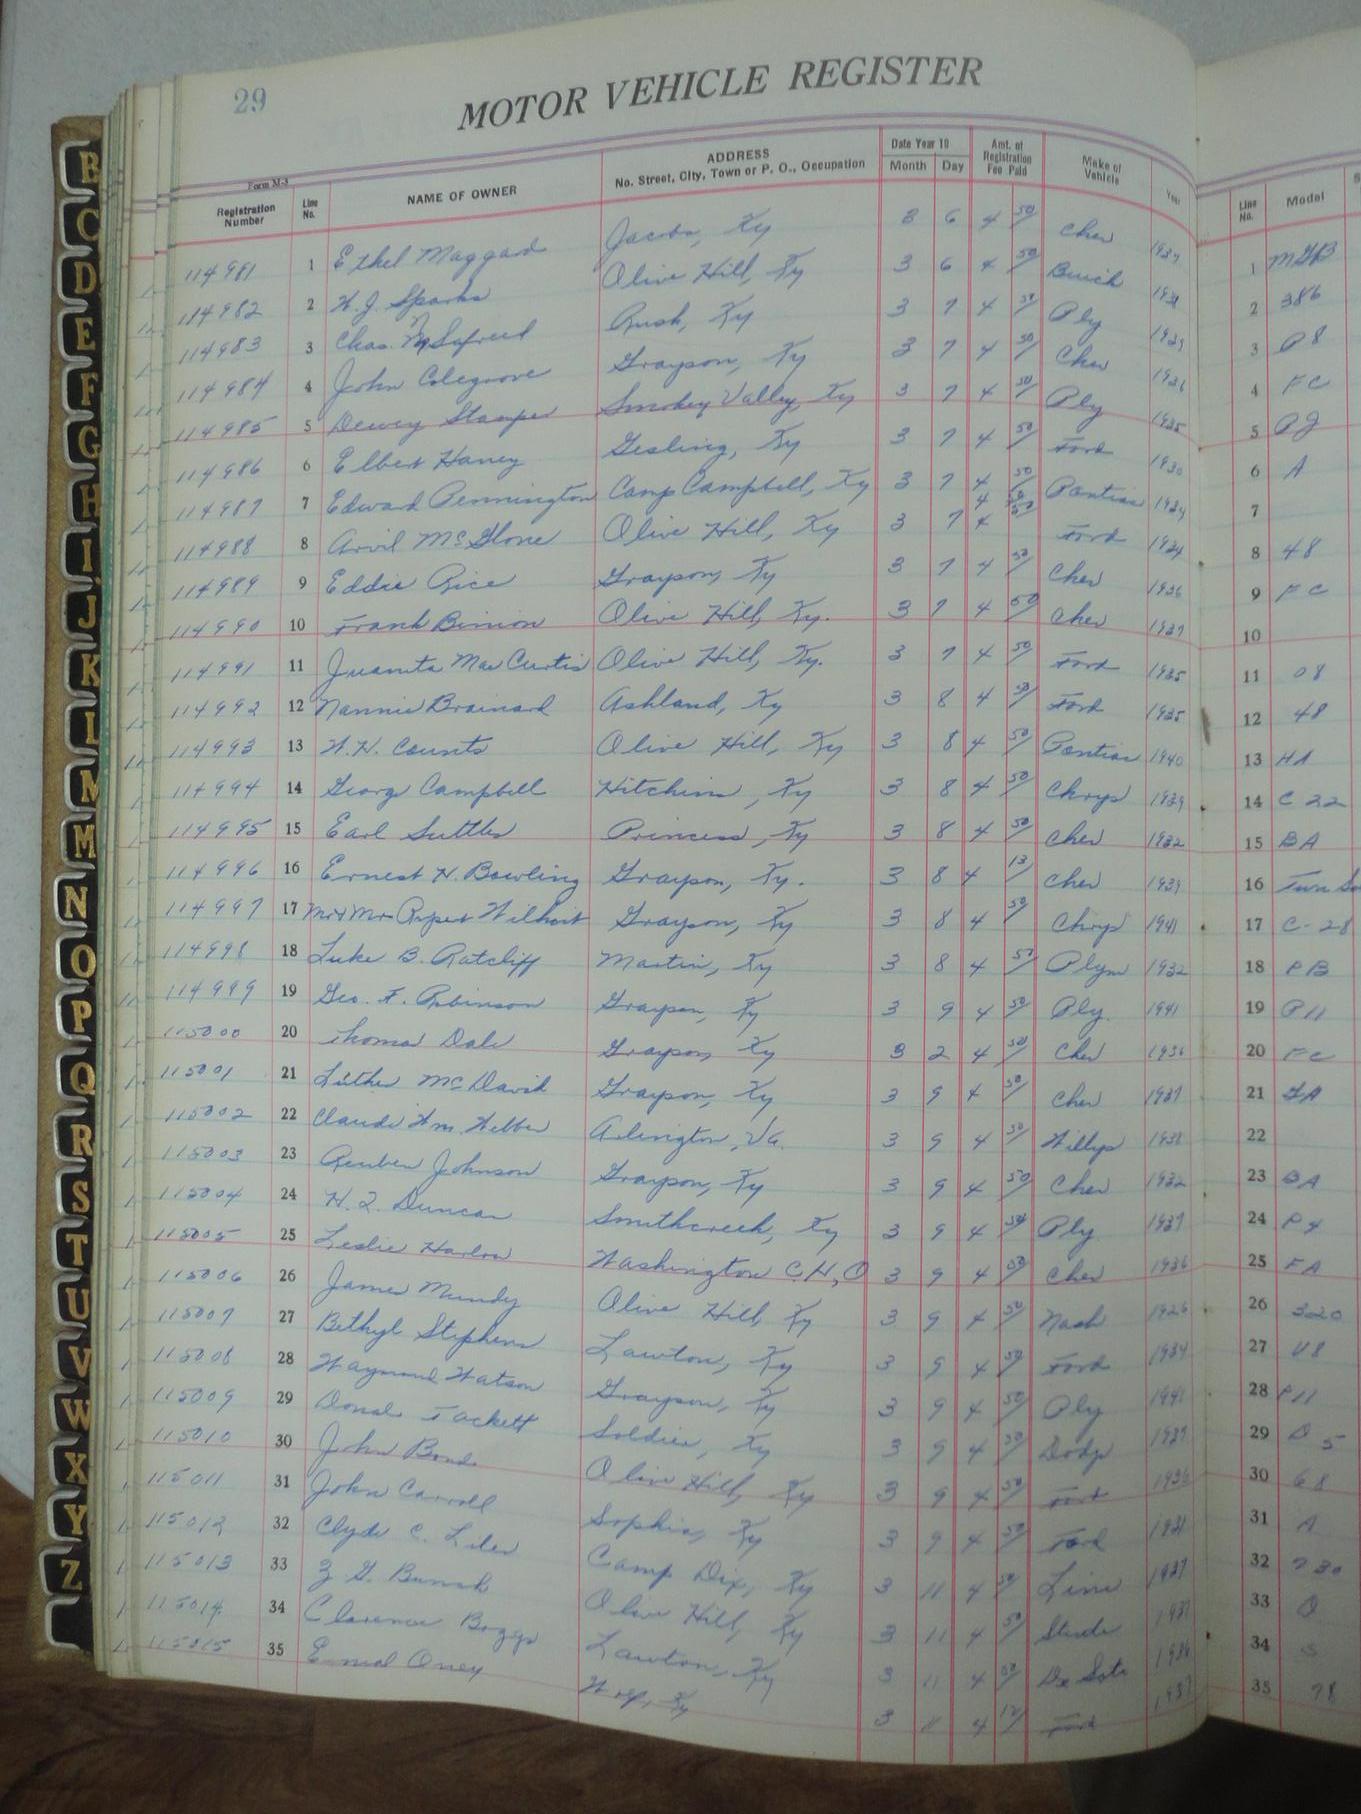 29
MOTOR VEHICLE REGISTER
Form M-3
Registration Number Line No. NAME OF OWNER ADDRESS No. Street, City, Town or P. O., Occupation Date Year 19 Month Day Amt. of Registration Fee Paid Make of Vehicle Year Line No. Model
114981 1 Ethel Maggad Jacobs, Ky 3 6 4 50 Chev 1937 1
114982 2 W. J. Sparks Olive Hill, Ky 3 6 4 50 Buick 2 386
114983 3 Chas. Rush, Ky 3 7 4 50 Ply 1939 3 P8
114984 4 John Colegrove Grayson, Ky 3 7 4 50 Chev 1936 4 FC
114985 5 Dewey Stamper Smokey Valley, Ky 3 7 4 50 Ply 1935 5 PJ
114986 6 Elbert Haney Gesling, Ky 3 7 4 50 Ford 1930 6 A
114987 7 Edward Pennington Camp Campbell, Ky 3 7 4 50 Pontiac 7
114988 8 Arvil McGlone Olive Hill, Ky 3 7 4 50 Ford 1934 8 48
114989 9 Eddie Rice Grayson, Ky 3 7 4 50 Chev 1936 9 FC
114990 10 Frank Binion Olive Hill, Ky. 3 7 4 50 Chev 1937 10
114991 11 Juanita Mae Curtis Olive Hill, Ky. 3 7 4 50 Ford 1935 11 08
114992 12 Nannie Brainard Ashland, Ky 3 8 4 50 Ford 1935 12 48
114993 13 W. H. Counts Olive Hill, Ky 3 8 4 50 Pontiac 1940 13 HA
114994 14 George Campbell Hitchins, Ky 3 8 4 50 Chrys 1939 14 C 22
114995 15 Earl Suttles Princess, Ky 3 8 4 50 Chev 1932 15 BA
114996 16 Ernest H. Bowling Grayson, Ky. 3 8 4 13 Chev 1939 16
114997 17 Mr & Mrs Rupert Wilhoit Grayson, Ky 3 8 4 50 Chrys 1941 17 C-28
114998 18 Luke B. Ratcliff Martin, Ky 3 8 4 50 Plym 1932 18 PB
114999 19 Geo. F. Robinson Grayson, Ky 3 9 4 50 Ply. 1941 19 P11
115000 20 Thomas Dale Grayson, Ky 3 2 4 50 Chev 1936 20 FC
115001 21 Luther McDavid Grayson, Ky 3 9 4 50 Chev 1937 21 GA
115002 22 Claude Wm. Webber Arlington, Va. 3 9 4 50 Willys 1938 22
115003 23 Reuben Johnson Grayson, Ky 3 9 4 50 Chev 1932 23 BA
115004 24 H. Z. Duncan Smithcreek, Ky 3 9 4 50 Ply 1937 24 P4
115005 25 Leslie Harlow Washington C.H., O 3 9 4 50 Chev 1936 25 FA
115006 26 James Mundy Olive Hill, Ky 3 9 4 50 Nash 1926 26 320
115007 27 Bethyl Stephens Lawton, Ky 3 9 4 50 Ford 1934 27 V8
115008 28 Waymond Watson Grayson, Ky 3 9 4 50 Ply 1941 28 P11
115009 29 Donal Tackett Soldier, Ky 3 9 4 50 Dodge 1937 29 D 5
115010 30 John Bond Olive Hill, Ky 3 9 4 50 Ford 1936 30 68
115011 31 John Carroll Sophia, Ky 3 9 4 50 Ford 1931 31 A
115012 32 Clyde C. Liles Camp Dix, Ky 3 11 4 50 Linc 1937 32 730
115013 33 Z. G. Burnsh Olive Hill, Ky 3 11 4 50 Stude 1937 33
115014 34 Clarence Boggs Lawton, Ky 3 11 4 50 De Soto 1936 34 S
115015 35 Ky 3 11 4 12 Ford 1937 35 78
B
C
D
E
F
G
H
I
J
K
L
M
M
N
O
P
Q
R
S
T
U
V
W
X
Y
Z